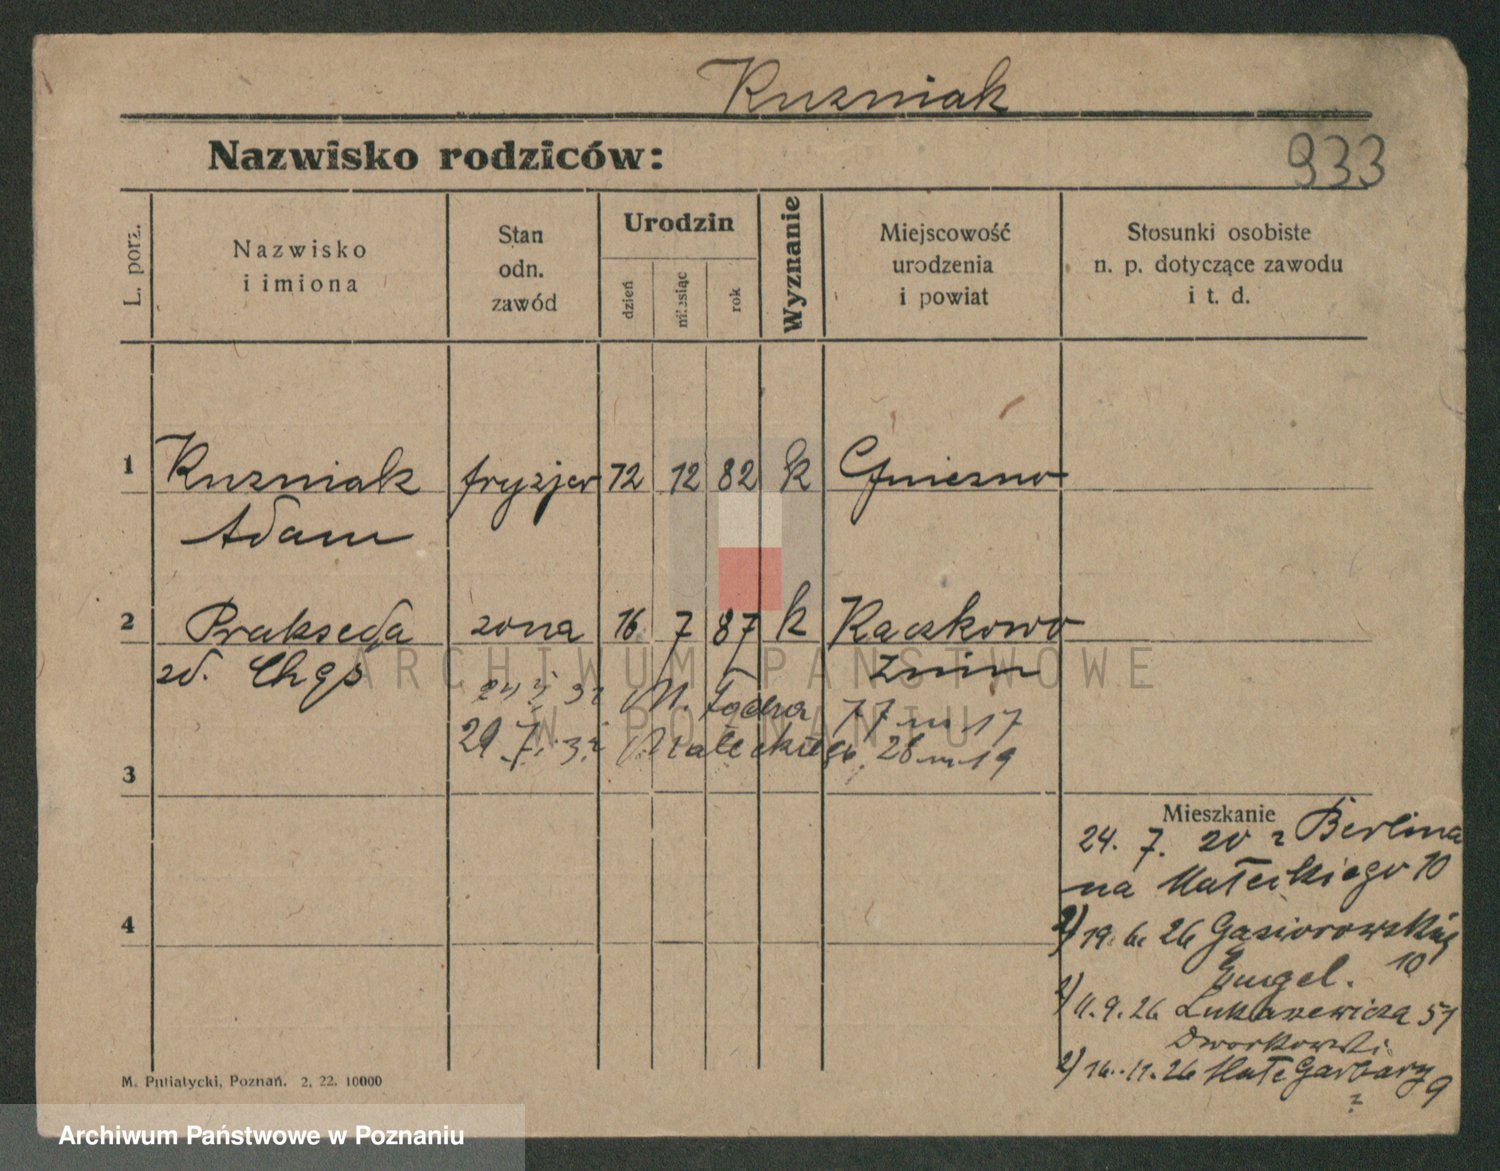 Kuzniak
Nazwisko rodziców:
933
L. porz.
Nazwisko
i imiona
Stan
odn.
zawód
Urodzin
dzień
miesiąc
rok
Wyznanie
Miejscowość
urodzenia
i powiat
Stosunki osobiste
n. p. dotyczące zawodu
i t. d.
1 Kuzniak fryzjer 12 12 82 k Gniezno
Adam
2 Prakseda zona 16 7 87 k Kaczkowo
zd. Chqs Znin
M. 77 m 17
29 7. 32 Małeckiego 28 m 19
3
Mieszkanie
24. 7. 20 z Berlina
na Małeckiego 10
2) 19. 6. 26 Gąsiorowskich
10
Engel.
2) 11. 9. 26 Lukaszewicza 51
Dworkowski
2) 16. 11. 26 Małe Garbary 9
4
M. Putiatycki, Poznań. 2. 22. 10000
ARCHIWUM PAŃSTWOWE
W POZNANIU
Archiwum Państwowe w Poznaniu